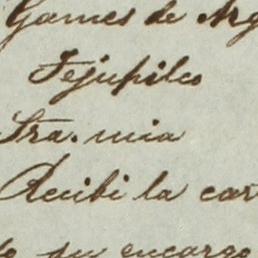 Games de Arg
Tejupilco
Sra. mia
Recibi la car
su encargo